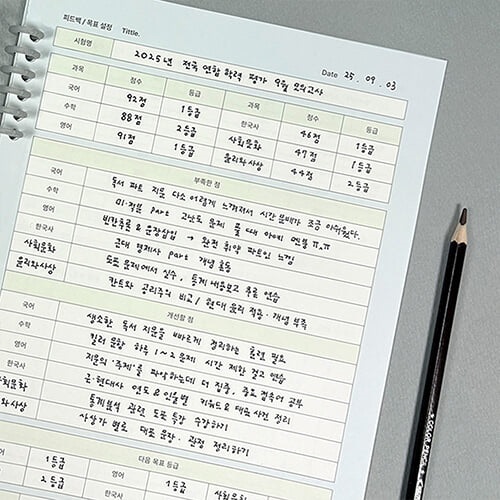 피드백 / 목표 설정 Tittle.
시험명 2025년 전국 연합 학력 평가 9월 모의고사 Date 25. 09. 03
과목 점수 등급 과목 점수 등급
국어 92점 1등급 한국사 46점 1등급
수학 88점 2등급 사회문화 47점 1등급
영어 91점 1등급 윤리와사상 44점 2등급
부족한 점
국어 독서 파트 지문 다소 어렵게 느껴져서 시간 분배가 조금 아쉬웠다.
수학 미·적분 part 고난도 문제 풀 때 아예 멘붕 ㅠㅠ
영어 빈칸추론 & 문장삽입 → 완전 취약 파트인 느낌
한국사 근대 열계사 part 개념 혼동
사회문화 도표 문제에서 실수, 통계 내용보고 추론 연습
윤리와사상 칸트와 공리주의 비교 / 현대 윤리 적용·개념 부족
개선할 점
국어 생소한 독서 지문을 빠르게 정리하는 훈련 필요
수학 킬러 문항 하루 1~2문제 시간 제한 걸고 연습
영어 지문의 '주제'를 파악하는데 더 집중, 중고 접속어 공부
한국사 근·현대사 연도 & 인물별 키워드 & 대표 사건 정리
사회문화 통계분석 관련 도표 특강 수강하기
와사상 사상가 별로 대표 문장·관점 정리하기
다음 목표 등급
1등급 영어 1등급 사회문화
2등급 한국사 1등급
COLOR PENCIL